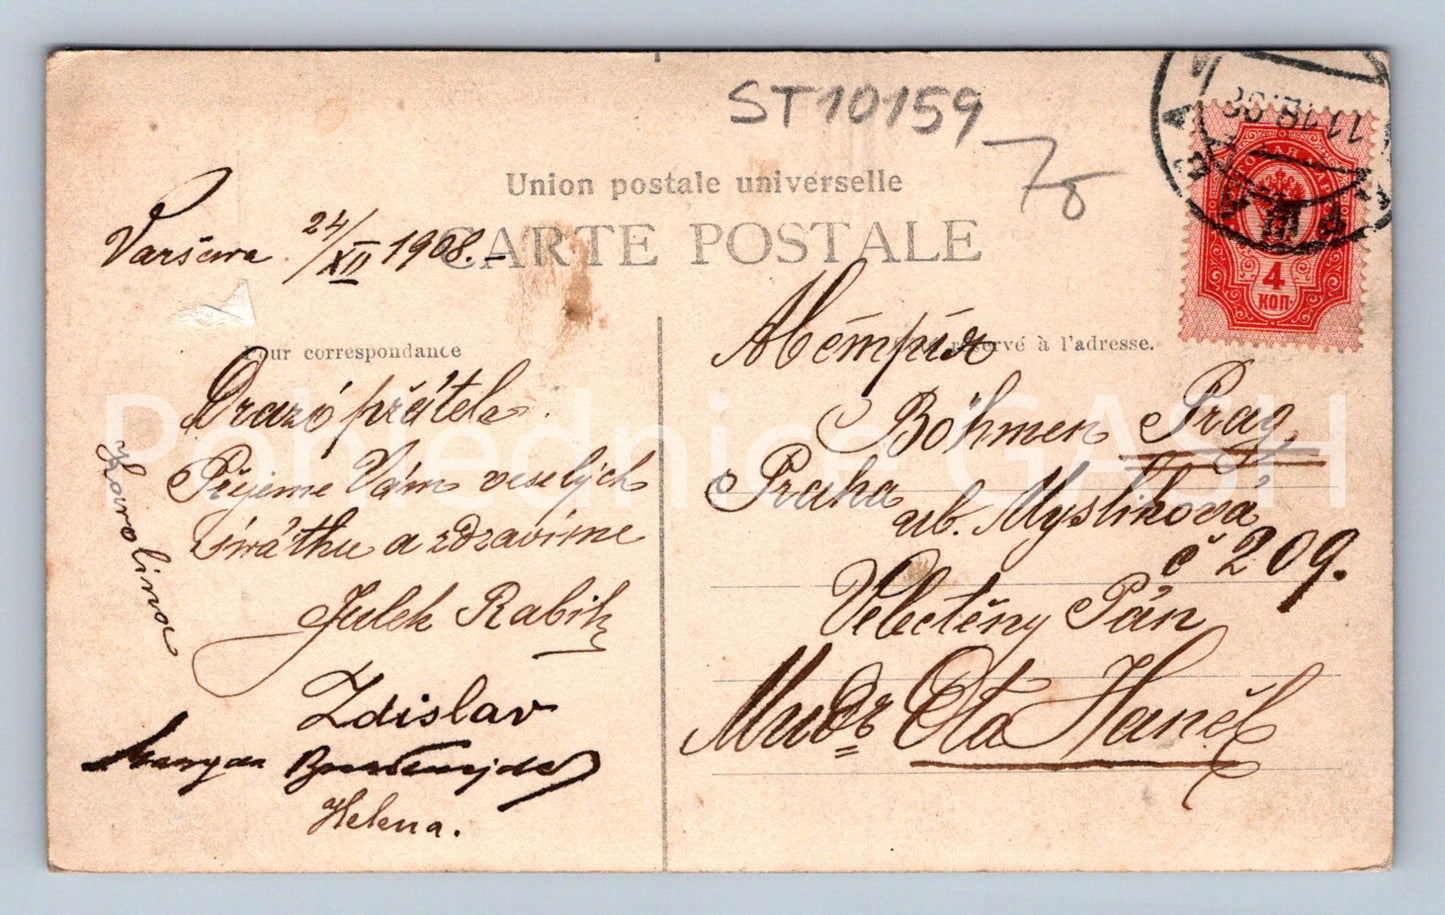 ST10159
78
Union postale universelle
CARTE POSTALE
Varšawa 24/XII 1908.-
Pour correspondance
réservé à l'adresse.
4
КОП.
Drazí přátelé.
Přejeme Vám veselých
svátků a zdravíme
Julek Rabik
Zdislav
Helena.
Karolina
Böhmen Prag
Praha
ul. Myslíkova
č 209.
Velectěný Pán
Mudr Ota Haněl
Pohlednice GASH